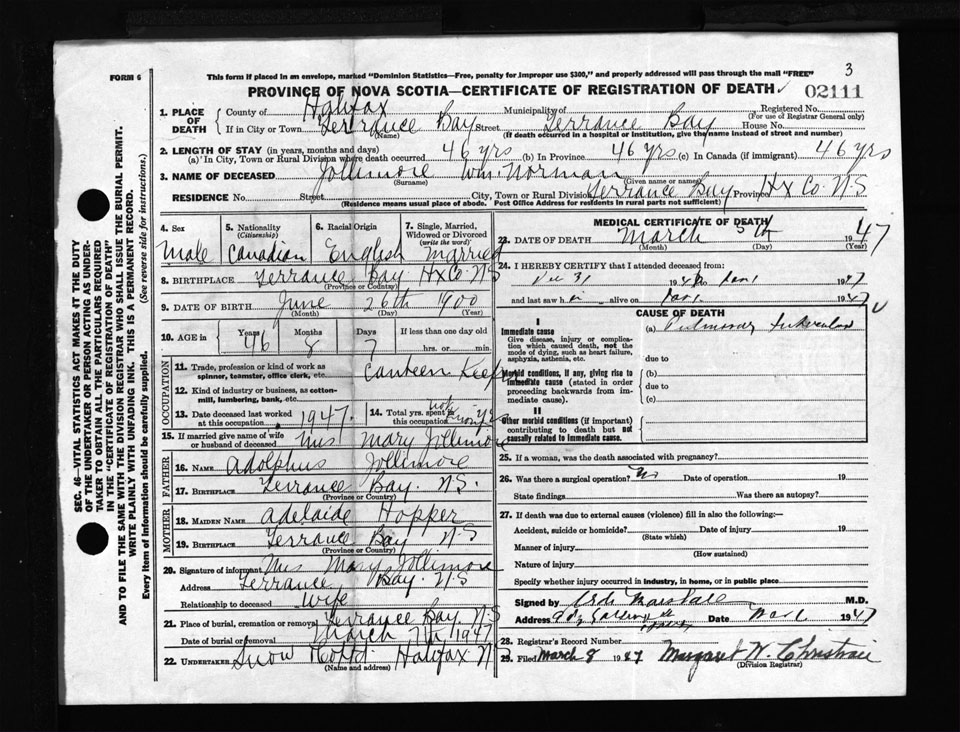 3
FORM 6
This form if placed in an envelope, marked "Dominion Statistics—Free, penalty for improper use $300," and properly addressed will pass through the mail "FREE"
PROVINCE OF NOVA SCOTIA—CERTIFICATE OF REGISTRATION OF DEATH 02111
SEC. 46—VITAL STATISTICS ACT MAKES IT THE DUTY
OF THE UNDERTAKER OR PERSON ACTING AS UNDER-
TAKER TO OBTAIN ALL THE PARTICULARS REQUIRED
IN THE "CERTIFICATE OF REGISTRATION OF DEATH"
AND TO FILE THE SAME WITH THE DIVISION REGISTRAR WHO SHALL ISSUE THE BURIAL PERMIT.
WRITE PLAINLY WITH UNFADING INK. THIS IS A PERMANENT RECORD.
Every item of Information should be carefully supplied. (See reverse side for instructions.)
1. PLACE OF DEATH County of Halifax Municipality of Registered No.
(For use of Registrar General only)
If in City or Town Terrance Bay Street Terrance Bay House No.
(Name) (If death occurred in a hospital or institution, give the name instead of street and number)
2. LENGTH OF STAY (in years, months and days)
(a) In City, Town or Rural Division where death occurred 46 yrs (b) In Province 46 yrs (c) In Canada (if immigrant) 46 yrs
3. NAME OF DECEASED Jollimore Wm. Norman
(Surname) (Given name or names)
RESIDENCE No. Street City, Town or Rural Division Terrance Bay Province Hx Co. N.S
(Residence means usual place of abode. Post Office Address for residents in rural parts not sufficient)
4. Sex 5. Nationality (Citizenship) 6. Racial Origin 7. Single, Married, Widowed or Divorced (write the word)
Male Canadian English Married
8. BIRTHPLACE Terrance Bay Hx Co. N.S
(Province or Country)
9. DATE OF BIRTH June 26th 1900
(Month) (Day) (Year)
10. AGE in Years Months Days If less than one day old
46 8 7 hrs. or min.
OCCUPATION
11. Trade, profession or kind of work as
spinner, teamster, office clerk, etc. Canteen Keeper
12. Kind of industry or business, as cotton-
mill, lumbering, bank, etc.
13. Date deceased last worked at this occupation 1947. 14. Total yrs. spent in this occupation not
15. If married give name of wife or husband of deceased Mrs Mary Jollimore
FATHER
16. NAME Adolphus Jollimore
17. BIRTHPLACE Terrance Bay. N.S.
(Province or Country)
MOTHER
18. MAIDEN NAME Adelaide Hopper
19. BIRTHPLACE Terrance Bay N.S
(Province or Country)
20. Signature of informant Mrs Mary Jollimore
Address Terrance Bay. N.S
Relationship to deceased Wife
21. Place of burial, cremation or removal Terrance Bay N.S
Date of burial or removal March 7th 1947
22. UNDERTAKER Snow Halifax N.S
(Name and address)
MEDICAL CERTIFICATE OF DEATH
23. DATE OF DEATH March 5th 1947
(Month) (Day) (Year)
24. I HEREBY CERTIFY that I attended deceased from:
Dec 31 19 to 1947
and last saw h alive on 1947
CAUSE OF DEATH
I
Immediate cause
Give disease, injury or complica-
tion which caused death, not the
mode of dying, such as heart failure,
asphyxia, asthenia, etc.
(a) Pulmonary Tuberculosis
due to
Morbid conditions, if any, giving rise to
immediate cause (stated in order
proceeding backwards from im-
mediate cause).
(b)
due to
(c)
II
Other morbid conditions (if important)
contributing to death but not
causally related to immediate cause.
25. If a woman, was the death associated with pregnancy?
26. Was there a surgical operation? No Date of operation 19
State findings Was there an autopsy?
27. If death was due to external causes (violence) fill in also the following:—
Accident, suicide or homicide? Date of injury 19
(State which)
Manner of injury
(How sustained)
Nature of injury
Specify whether injury occurred in industry, in home, or in public place
Signed by Marshall M.D.
Address Date 1947
28. Registrar's Record Number
29. Filed March 8 1947 Margaret W. Christian
(Division Registrar)